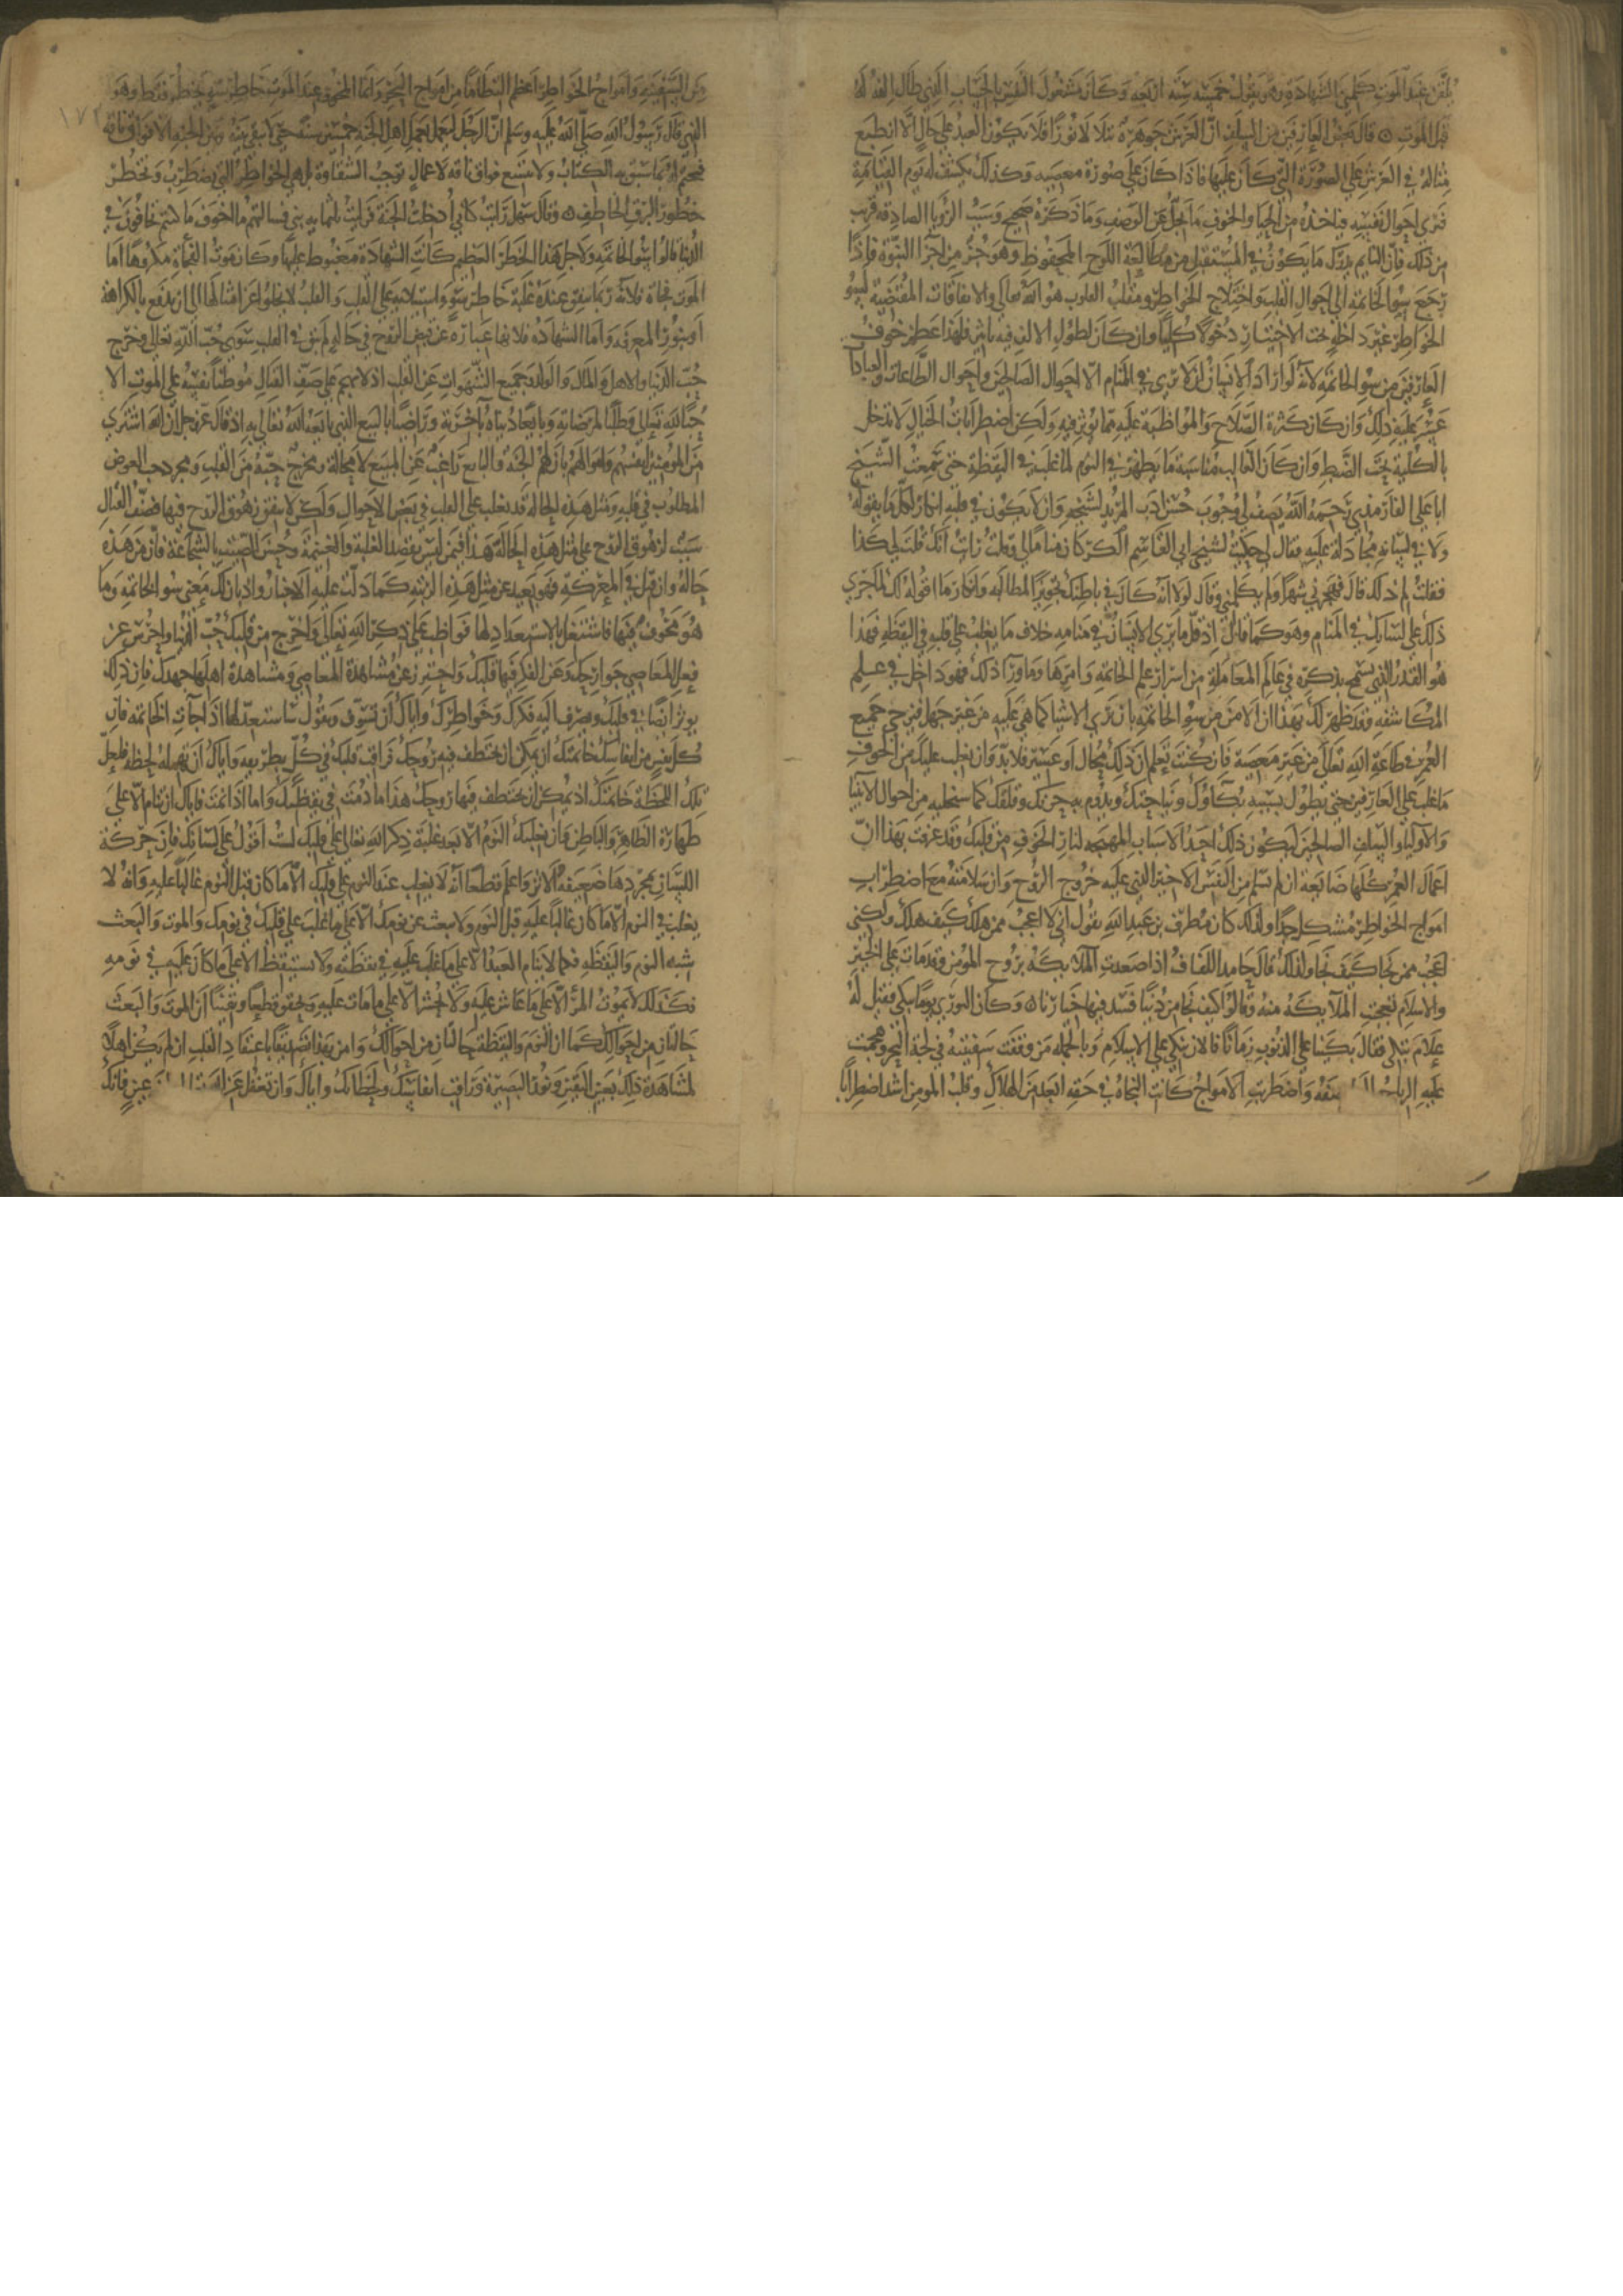 يلقن عند الموت كلمتي الشهادة وهو يقول خمسة ستة اربعة وكان مشغول النفس بالحساب الذي طال الفه له
قبل الموت ٥ قال بعض العارفين من السلف ان العرش جوهرة تتلالا نورا فلا يكون العبد على حال الا انطبع
مثاله في العرش على الصورة التي كان عليها فاذا كان على صورة معصية وكذلك يكشف له يوم القيامة
فيرى احوال نفسه فياخذه من الحيا والخوف ما يجل عن الوصف وما ذكره صحيح وسبب الرويا الصادقة قريب
من ذلك فان النايم يدرك ما يكون في المستقبل من مطالعة اللوح المحفوظ وهو جزء من اجزا النبوة فاذا
رجع سوء الخاتمة الى احوال القلب واختلاج الخواطر ومقلب القلوب هو الله تعالى والاتفاقات المقتضية لسوء
الخواطر غير داخلة تحت الاختيار دخولا كليا وان كان لطول الالف فيه تاثير فلهذا عظم خوف
العارفين من سوء الخاتمة لانه لو اراد الانسان ان لا يرى في المنام الا احوال الصالحين واحوال الطاعات والعبادات
عسر عليه ذلك وان كان كثرة الصلاح والمواظبة عليه مما يوثر فيه ولكن اضطرابات الخيال لا تدخل
بالكلية تحت الضبط وان كان الغالب مناسبة ما يظهر في النوم لما غلب في اليقظة حتى سمعت الشيخ
ابا علي الفارمذي رحمه الله يصف لي وجوب حسن ادب المريد لشيخه وان لا يكون في قلبه انكار لكل ما يقوله
ولا في لسانه مجادلة عليه فقال لي حكيت لشيخي ابي القاسم الكركاني مناما لي وقلت رايت انك قلت لي كذا
فقلت لم ذلك قال فهجرني شهرا ولم يكلمني وقال لولا انه كان في باطنك تجويز المطالبة وانكار ما اقوله لك لما جرى
ذلك على لسانك في المنام وهو كما قال اذ قل ما يرى الانسان في منامه خلاف ما يغلب على قلبه في اليقظة فهذا
هو القدر الذي نسمح بذكره في عالم المعاملة من اسرار علم الخاتمة وامرها وما ورا ذلك فهو داخل في علم
المكاشفة وقد ظهر لك بهذا ان الامن من سوء الخاتمة بان ترى الاشيا كما هي عليه من غير جهل فيزجي جميع
العمر في طاعة الله تعالى من غير معصية فان كنت تعلم ان ذلك محال او عسير فلا بد وان يغلب عليك من الخوف
ما غلب على العارفين حتى يطول بسببه بكاوك ونياحتك ويدوم به حزنك وقلقك كما سنحكيه من احوال الانبيا
والاوليا والسلف الصالحين ليكون ذلك احد الاسباب المهيجة لنار الخوف من قلبك وقد عرفت بهذا ان
اعمال العمر كلها ضايعة ان لم تسلم من النفس الاخير الذي عليه خروج الروح وان سلامته مع اضطراب
امواج الخواطر مشكل جدا ولذلك كان مطرف بن عبد الله يقول اني لا اعجب ممن هلك كيف هلك ولكني
اعجب ممن نجا كيف نجا ولذلك قال حامد اللفاف اذا صعدت الملايكة بروح المومن وقد مات على الخير
والاسلام تعجبت الملايكة منه وقالوا كيف نجا من دنيا فسد فيها خيارنا ٥ وكان الثوري يوما يبكي فقيل له
علام تبكي فقال بكينا على الذنوب زمانا فالان نبكي على الاسلام وبالجملة من وقعت سفينته في لجة البحر وهجمت
عليه الرياح العاصفة واضطربت الامواج كانت النجاة في حقه ابعد من الهلاك وقلب المومن اشد اضطرابا
١٧٢
من السفينة وامواج الخواطر اعظم التطاما من امواج البحر وانما المخوف عند الموت خاطر سوء يخطر فقط وهو
الذي قال رسول الله صلى الله عليه وسلم ان الرجل ليعمل بعمل اهل الجنة خمسين سنة حتى لا يبقى بينه وبين الجنة الا فواق ناقة
فيختم له بما سبق به الكتاب ولا يتسع فواق ناقة لاعمال توجب الشقاوة بل هي الخواطر التي تضطرب وتخطر
خطور البرق الخاطف ٥ وقال سهل رايت كاني ادخلت الجنة فرايت ثلثماية نبي فسالتهم ما اخوف ما كنتم تخافون في
الدنيا قالوا سوء الخاتمة ولاجل هذا الخطر العظيم كانت الشهادة مغبوط عليها وكان موت الفجاة مكروها اما
الموت فجاة فلانه ربما يتفق عند غلبة خاطر سوء واستيلائه على القلب والقلب لا يخلو عن امثالها الا ان يدفع بالكراهة
او بنور المعرفة واما الشهادة فلانها عبارة عن قبض الروح في حالة لم يبق في القلب سوى حب الله تعالى وخرج
حب الدنيا والاهل والمال والولد وجميع الشهوات عن القلب اذ لا يهجم على صف القتال موطنا نفسه على الموت الا
حبا لله تعالى وطلبا لمرضاته وبايعا دنياه باخرته وراضيا بالبيع الذي بايعه الله تعالى به اذ قال عز وجل ان الله اشترى
من المومنين انفسهم واموالهم بان لهم الجنة والبايع راغب عن المبيع لا محالة ومخرج حبه من القلب ومجرد حب العوض
المطلوب في قلبه ومثل هذه الحالة قد يغلب على القلب في بعض الاحوال ولكن لا يتفق زهوق الروح فيها فصف القتال
سبب لزهوق الروح على مثل هذه الحالة هذا فيمن ليس يقصد الغلبة والغنيمة وحسن الصيت بالشجاعة فان من هذه
حاله وان قتل في المعركة فهو بعيد عن مثل هذه الرتبة كما دلت عليه الاخبار واذ بان لك معنى سوء الخاتمة وما
هو مخوف فيها فاشتغل بالاستعداد لها فواظب على ذكر الله تعالى واخرج من قلبك حب الدنيا واحرس عن
فعل المعاصي جوارحك وعن الفكر فيها قلبك واحترز عن مشاهدة المعاصي ومشاهدة اهلها جهدك فان ذلك
يوثر ايضا في قلبك ويصرف اليه فكرك وخواطرك واياك ان تسوف وتقول ساستعد لها اذا جات الخاتمة فان
كل نفس من انفاسك خاتمتك اذ يمكن ان تختطف فيه روحك فراقب قلبك في كل تطريفة واياك ان تهمله لحظة فلعل
تلك اللحظة خاتمتك اذ يمكن ان تختطف فيها روحك هذا ما دمت في يقظتك واما اذا نمت فاياك ان تنام الا على
طهارة الظاهر والباطن وان يغلبك النوم الا بعد غلبة ذكر الله تعالى على قلبك لست اقول على لسانك فان حركة
اللسان بمجردها ضعيفة الاثر واعلم قطعا انه لا يغلب عند النوم على قلبك الا ما كان قبل النوم غالبا عليه وانه لا
يغلب في النوم الا ما كان غالبا عليه قبل النوم ولا تبعث عن نومك الا على ما غلب على قلبك في نومك والموت والبعث
شبه النوم واليقظة فكما لا ينام العبد الا على ما غلب عليه في يقظته ولا يستيقظ الا على ما كان عليه في نومه
فكذلك لا يموت المرء الا على ما عاش عليه ولا يحشر الا على ما مات عليه وتحقق قطعا ويقينا ان الموت والبعث
حالتان من احوالك كما ان النوم واليقظة حالتان من احوالك وامن بهذا تصديقا باعتقاد القلب ان لم تكن اهلا
لمشاهدة ذلك بعين اليقين ونور البصيرة وراقب انفاسك ولحظاتك واياك وان تغفل عن الله عين فانك